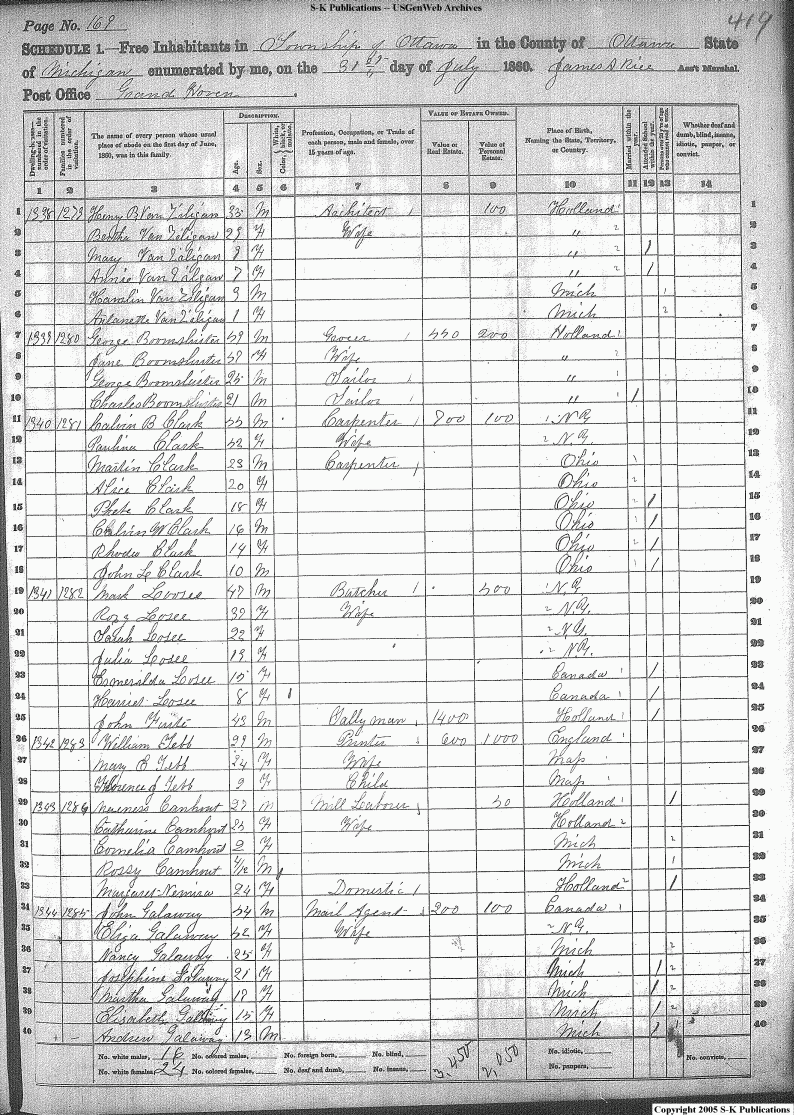 S-K Publications -- USGenWeb Archives
Page No. 169
419
SCHEDULE 1.—Free Inhabitants in Township of Ottawa in the County of Ottawa State
of Michigan enumerated by me, on the 31st day of July 1860. James D Rice Ass't Marshal.
Post Office Grand Haven.
Dwelling-houses numbered in the order of visitation.
Families numbered in the order of visitation.
The name of every person whose usual place of abode on the first day of June, 1860, was in this family.
DESCRIPTION.
Age.
Sex.
Color, White, black, or mulatto.
Profession, Occupation, or Trade of each person, male and female, over 15 years of age.
VALUE OF ESTATE OWNED.
Value of Real Estate.
Value of Personal Estate.
Place of Birth, Naming the State, Territory, or Country.
Married within the year.
Attended School within the year.
Persons over 20 y'rs of age who cannot read & write.
Whether deaf and dumb, blind, insane, idiotic, pauper, or convict.
1 2 3 4 5 6 7 8 9 10 11 12 13 14
1 1338 1279 Henry B Van Ziligan 35 M Architect 100 Holland 1
2 Bertha Van Ziligan 29 F Wife " 2
3 Mary Van Zaligan 8 F " / 3
4 Annie Van Zaligan 7 F " / 4
5 Hamlin Van Ziligan 3 M Mich 5
6 Antanette Van Ziligan 1 F Mich 6
7 1339 1280 George Boomsluiter 59 M Grocer 550 200 Holland 7
8 Jane Boomsluiter 57 F Wife " 8
9 George Boomsluiter 25 M Sailor " 9
10 Charles Boomsluiter 21 M Sailor " / 10
11 1340 1281 Calvin B Clark 55 M Carpenter 800 100 N.Y. 11
12 Paulina Clark 52 F Wife N.Y. 12
13 Martin Clark 23 M Carpenter Ohio 13
14 Alice Clark 20 F Ohio 14
15 Phebe Clark 18 F Ohio / 15
16 Calvin W Clark 16 M Ohio / 16
17 Rhoda Clark 14 F Ohio / 17
18 John L Clark 10 M Ohio / 18
19 1341 1282 Mark Loosee 47 M Butcher 500 N.Y. 19
20 Roze Losee 39 F Wife N.Y. 20
21 Sarah Losee 22 F N.Y. 21
22 Julia Losee 19 F N.Y. 22
23 Esmerilda Losee 15 F Canada / 23
24 Harriet Losee 8 F Canada / 24
25 John 43 M Tallyman 1400 Holland / 25
26 1342 1283 William Tebb 29 M Printer 600 1000 England 26
27 Mary E Tebb 24 F Wife Mass 27
28 Florence J Tebb 9 F Child Mass 28
29 1343 1284 Camhout 27 M Mill Labourer 50 Holland / 29
30 Catharine Camhout 25 F Wife Holland 30
31 Cornelia Camhout 2 F Mich 31
32 Rossy Camhout 4/12 M Mich 32
33 Margaret Nemira 24 F Domestic Holland / 33
34 1344 1285 John Galaway 54 M Mail Agent 200 100 Canada 34
35 Eliza Galaway 52 F Wife N.Y. 35
36 Nancy Galaway 25 F Mich 36
37 Josephine Galaway 21 F Mich / 37
38 Martha Galaway 18 F Mich / 38
39 Elisabeth Galaway 15 F Mich / 39
40 Andrew Galaway 13 M Mich / 40
No. white males, 16 No. colored males, No. foreign born, No. blind, 3,450 2,050 No. idiotic,
No. white females, 24 No. colored females, No. deaf and dumb, No. insane, No. paupers, No. convicts,
Copyright 2005 S-K Publications